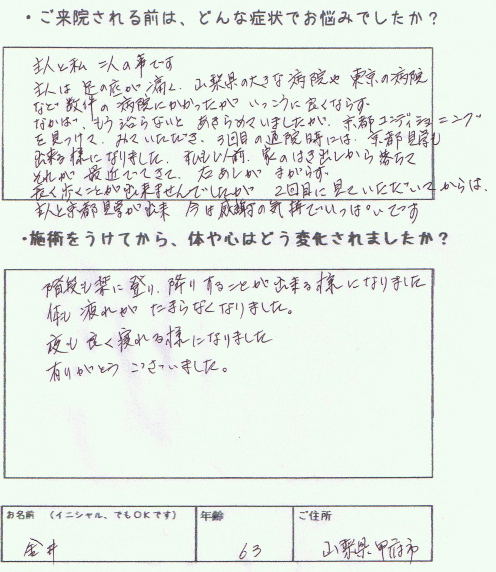 ・ご来院される前は、どんな症状でお悩みでしたか？
主人と私 二人の事です
主人は 足の底が痛く、山梨県の大きな病院や 東京の病院
など 数件の 病院にかかったが いっこうに良くならず。
なかば、もう治らないと あきらめていましたが、京都コンディショニング
を見つけて、みていただき、3回目の通院時には、京都見学も
出来る様になりました。私も以前、家のはき出しから落ちて
それが 最近でてきて、右あしが まがらず。
長く歩くことが出来ませんでしたが 2回目に見ていただいてからは、
主人と京都見学が出来 今は感謝の気持でいっぱいです
・施術をうけてから、体や心はどう変化されましたか？
階段も楽に登り、降りすることが出来る様になりました
体も 疲れが たまらなくなりました。
夜も 良く寝れる様になりました
有りがとう ございました。
お名前 （イニシャル、でもOKです） 年齢 ご住所
金井 63 山梨県甲府市